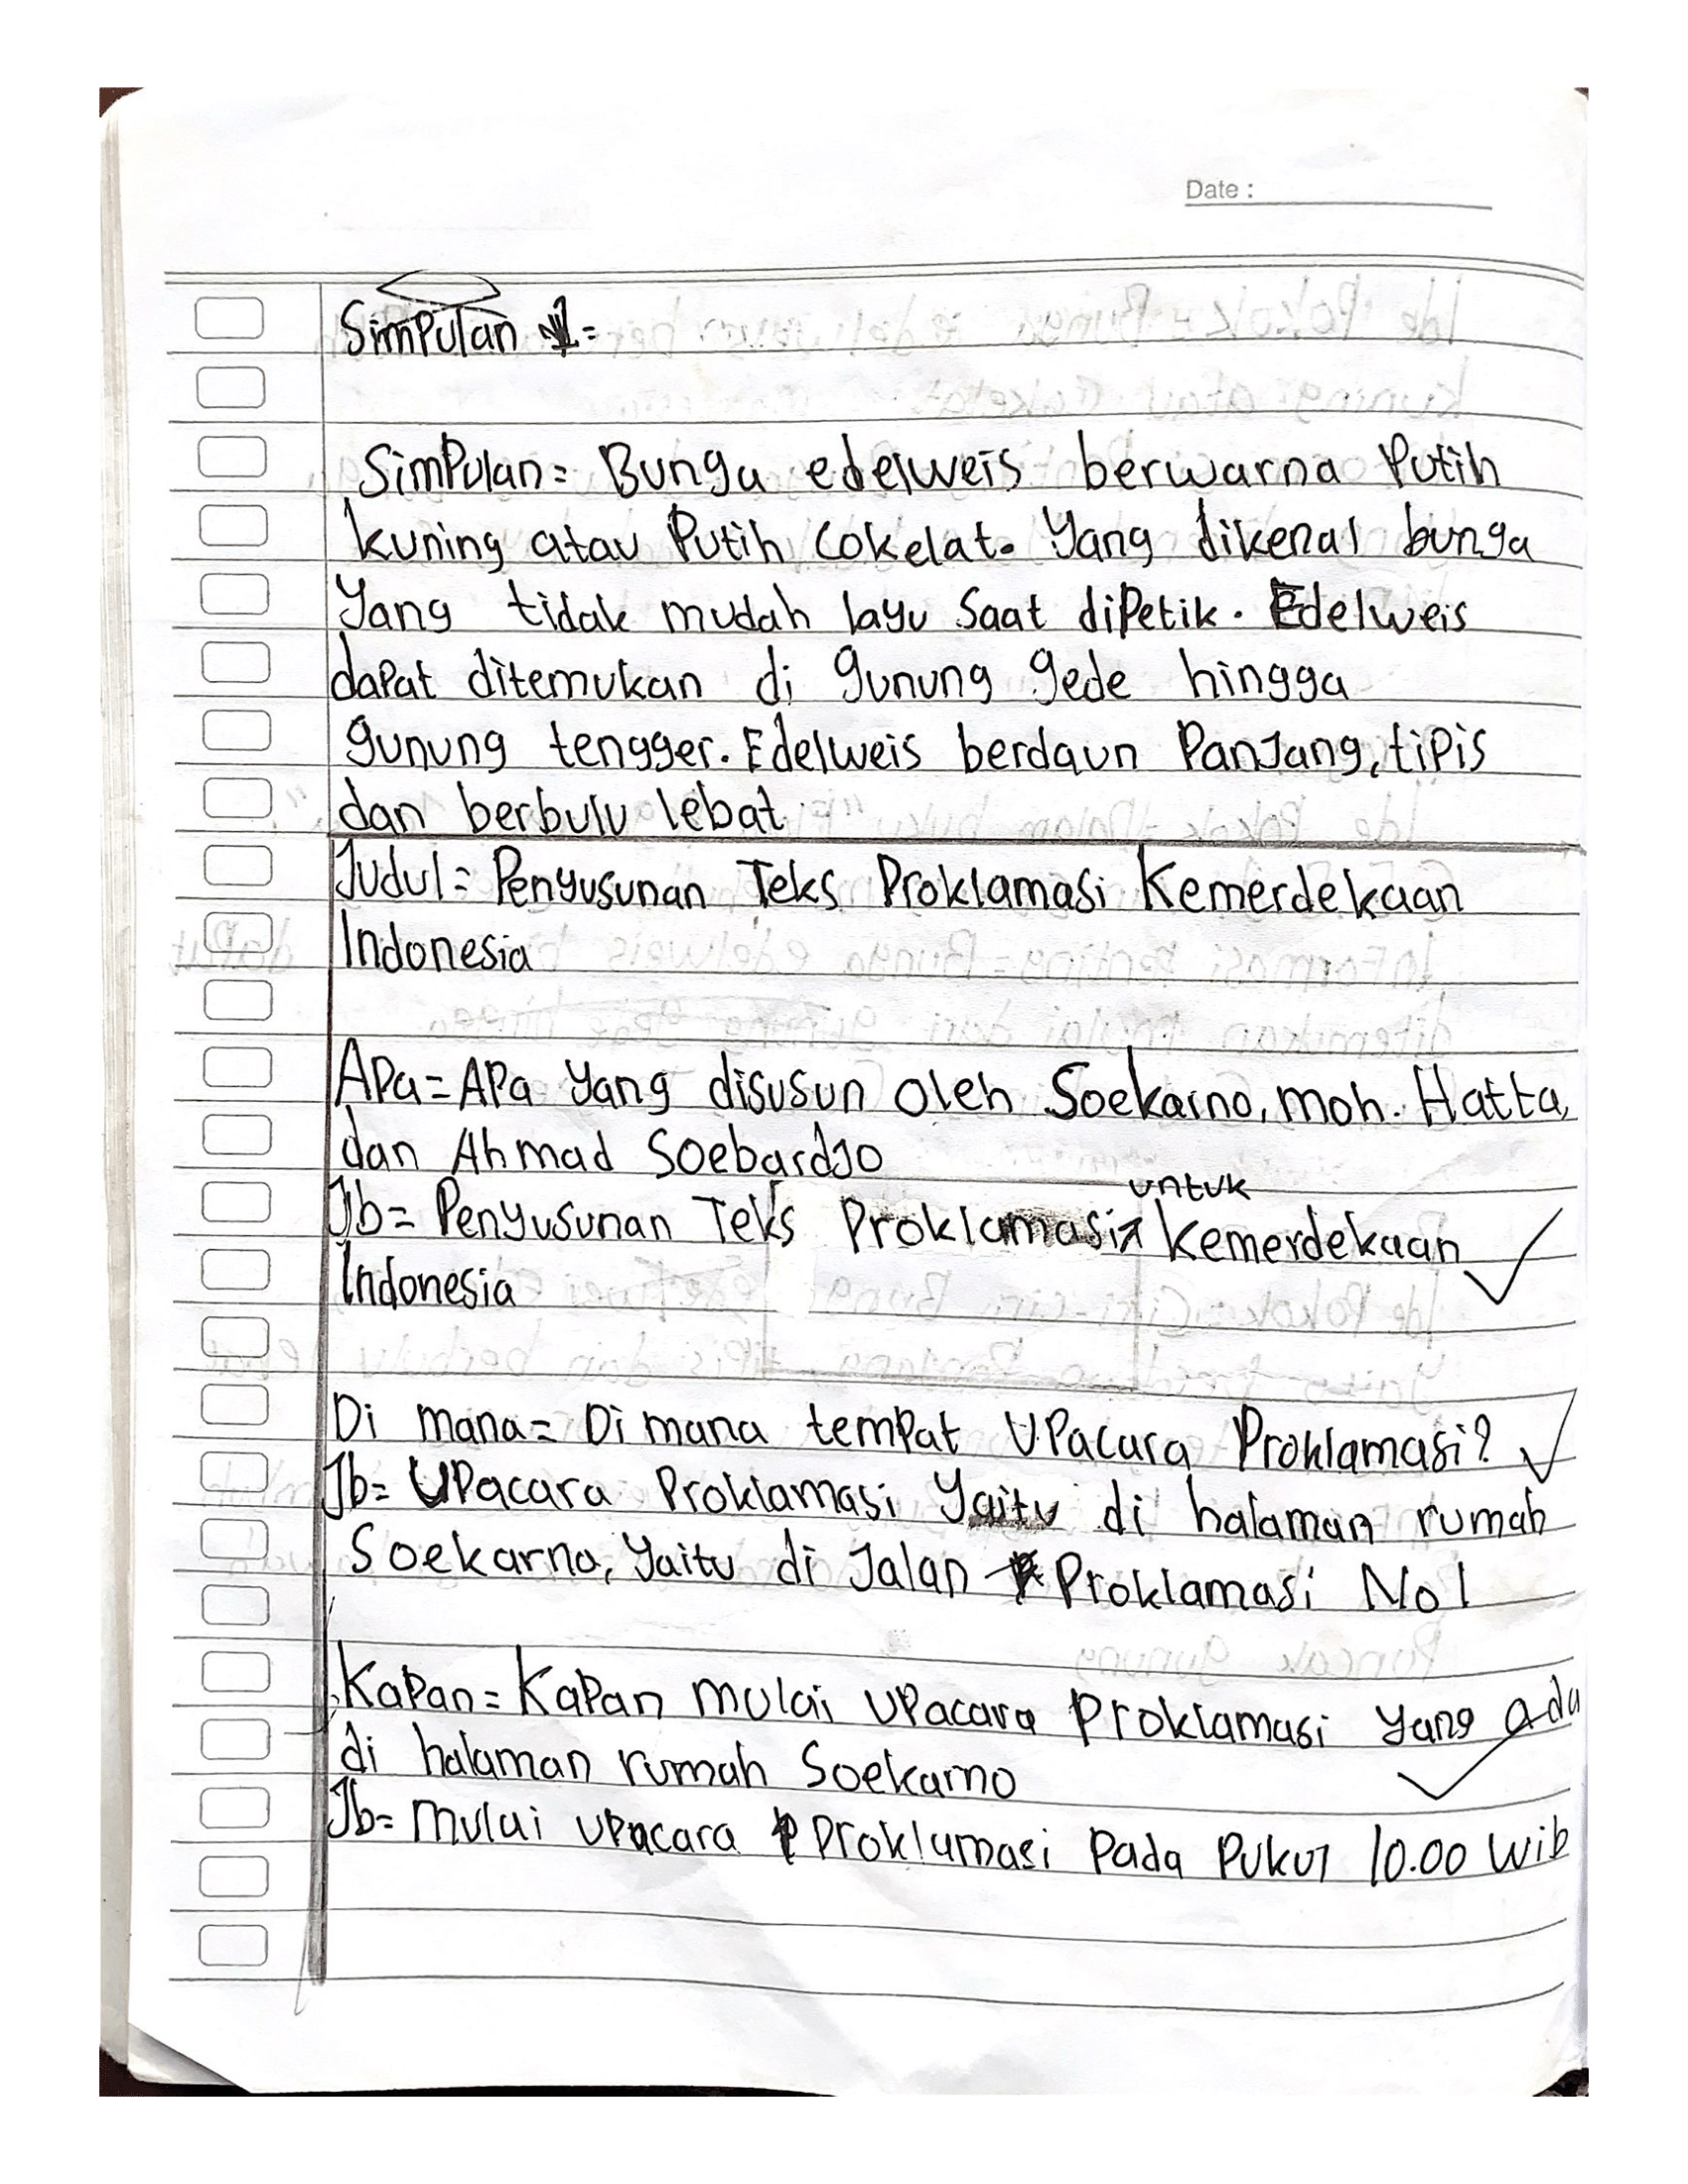 Date :
Simpulan 1=
Simpulan= Bunga edelweis berwarna Putih
kuning atau Putih Cokelat. Yang dikenal bunga
Yang tidak mudah layu Saat dipetik. Edelweis
dapat ditemukan di gunung gede hingga
gunung tengger. Edelweis berdaun Panjang, tipis
dan berbulu lebat
Judul= Penyusunan Teks Proklamasi Kemerdekaan
Indonesia
Apa= Apa yang disusun oleh Soekarno, moh. Hatta,
dan Ahmad Soebardjo
Jb= Penyusunan Teks Proklamasi untuk kemerdekaan
Indonesia
Di mana= Di mana tempat Upacara Proklamasi?
Jb= Upacara Proklamasi Yaitu di halaman rumah
Soekarno, Yaitu di Jalan Proklamasi No 1
Kapan= Kapan mulai upacara Proklamasi yang ada
di halaman rumah Soekarno
Jb= mulai upacara Proklamasi Pada Pukul 10.00 Wib